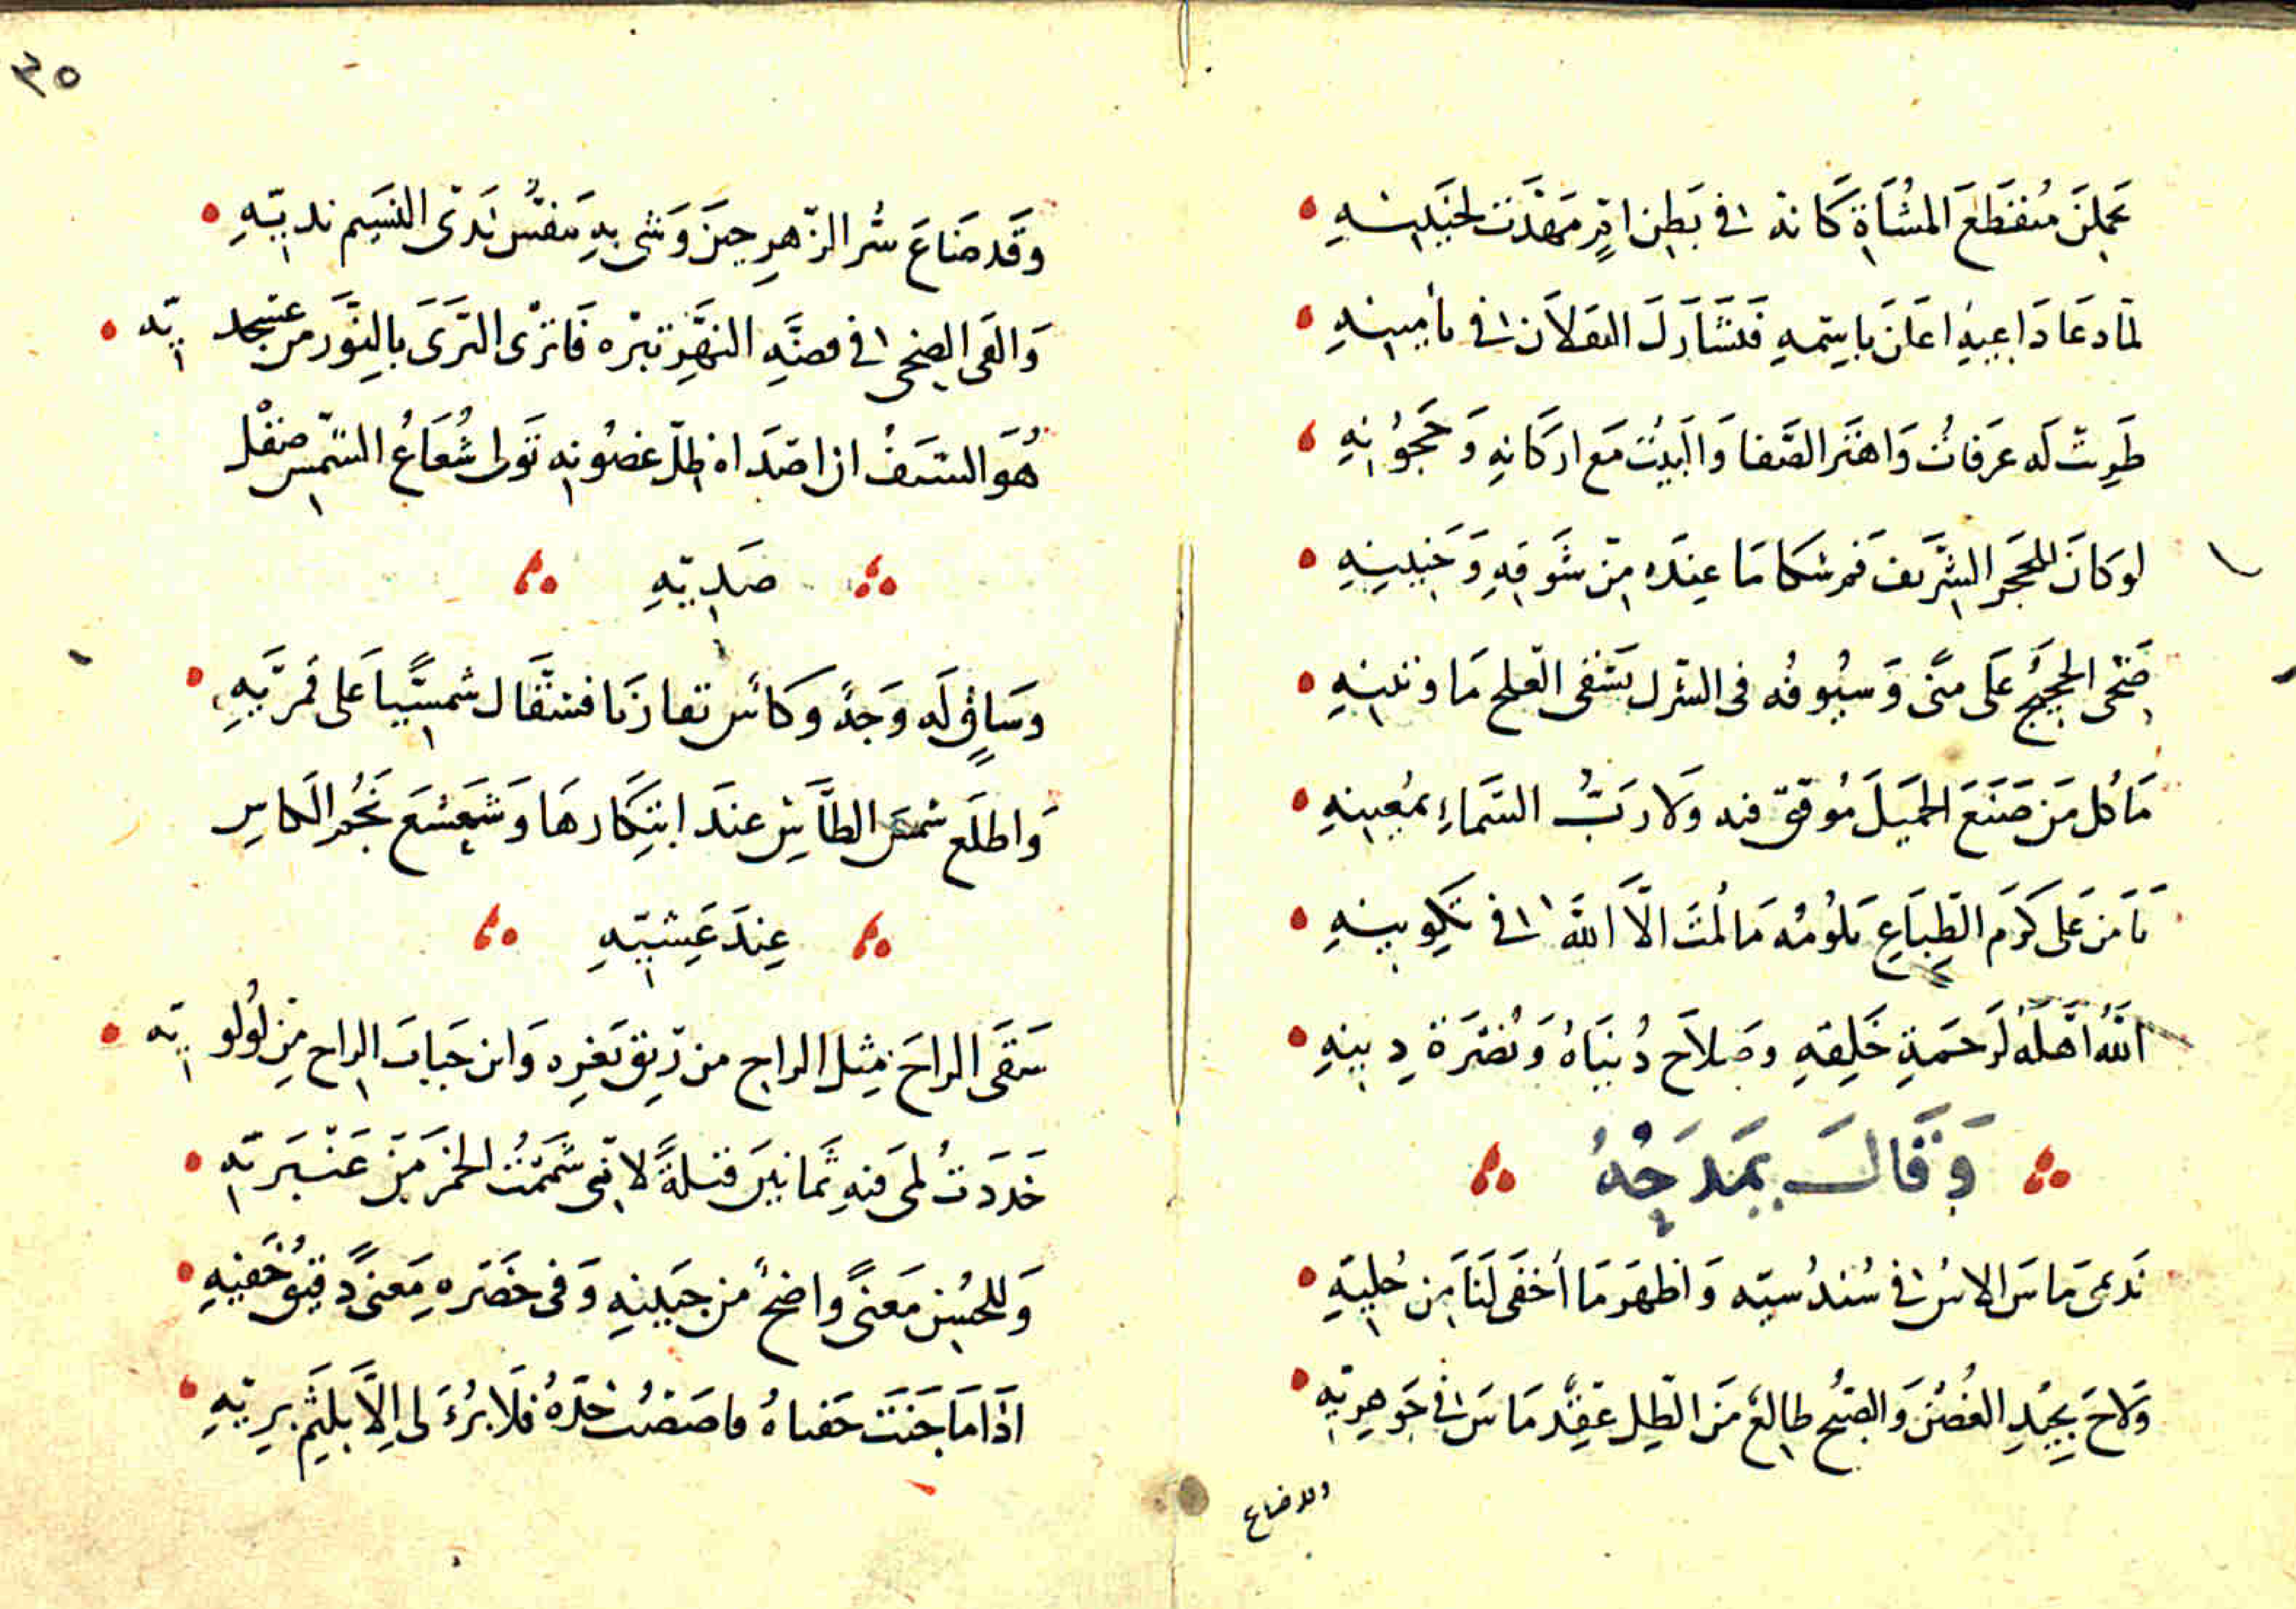 يحملن منقطع المشاة كانه في بطن ام مهدت لجنينه
لما دعا داعيه اعلن باسمه فتشارك الثقلان في تأمينه
طربت له عرفات واهتز الصفا والبيت مع اركانه وحجونه
لو كان للحجر الشريف فم شكا ما عنده من شوقه وحنينه
ضحى الحجيج على منى وسيوفه في الشرك
ما كل من صنع الجميل موفق فيه ولا رب السماء بمعينه
يا من على كرم الطباع يلومه ما لمت الا الله في تكوينه
الله اهله لرحمة خلقه وصلاح دنياه ونصرة دينه
وقال يمدحه
ندىمى ماس الاس في سندسيه واظهر ما أخفى لنا من حليه
ولاح بجيد الغصن والصبح طالع من الطل عقد ماس في جوهريه
وقد ضاع
٣٥
وقد ضاع سر الزهر حين وشى به تنفس ندى النسيم نديه
والقى الضحى في فضة النهر تبره فاترى الثرى بالنور من عسجديه
هو السيف ان اصداه ظل غصونه تولى شعاع الشمس صقل
صديه
وساق له وجد وكأس تقارنا فتقال شمسيا على قمريه
واطلع شمس الطاس عند ابتكارها وشعشع نجم الكاس
عند عشيه
سقى الراح مثل الراح من ريق ثغره وابن حباب الراح من لولويه
حددت لمى فيه ثمانين قبلة لاني شممت الخمر من عنبريه
وللحسن معنى واضح من جبينه وفي خصره معنى دقيق خفيه
اذا ما جنت عيناه خده فلا برء لي الا بلثم بريه